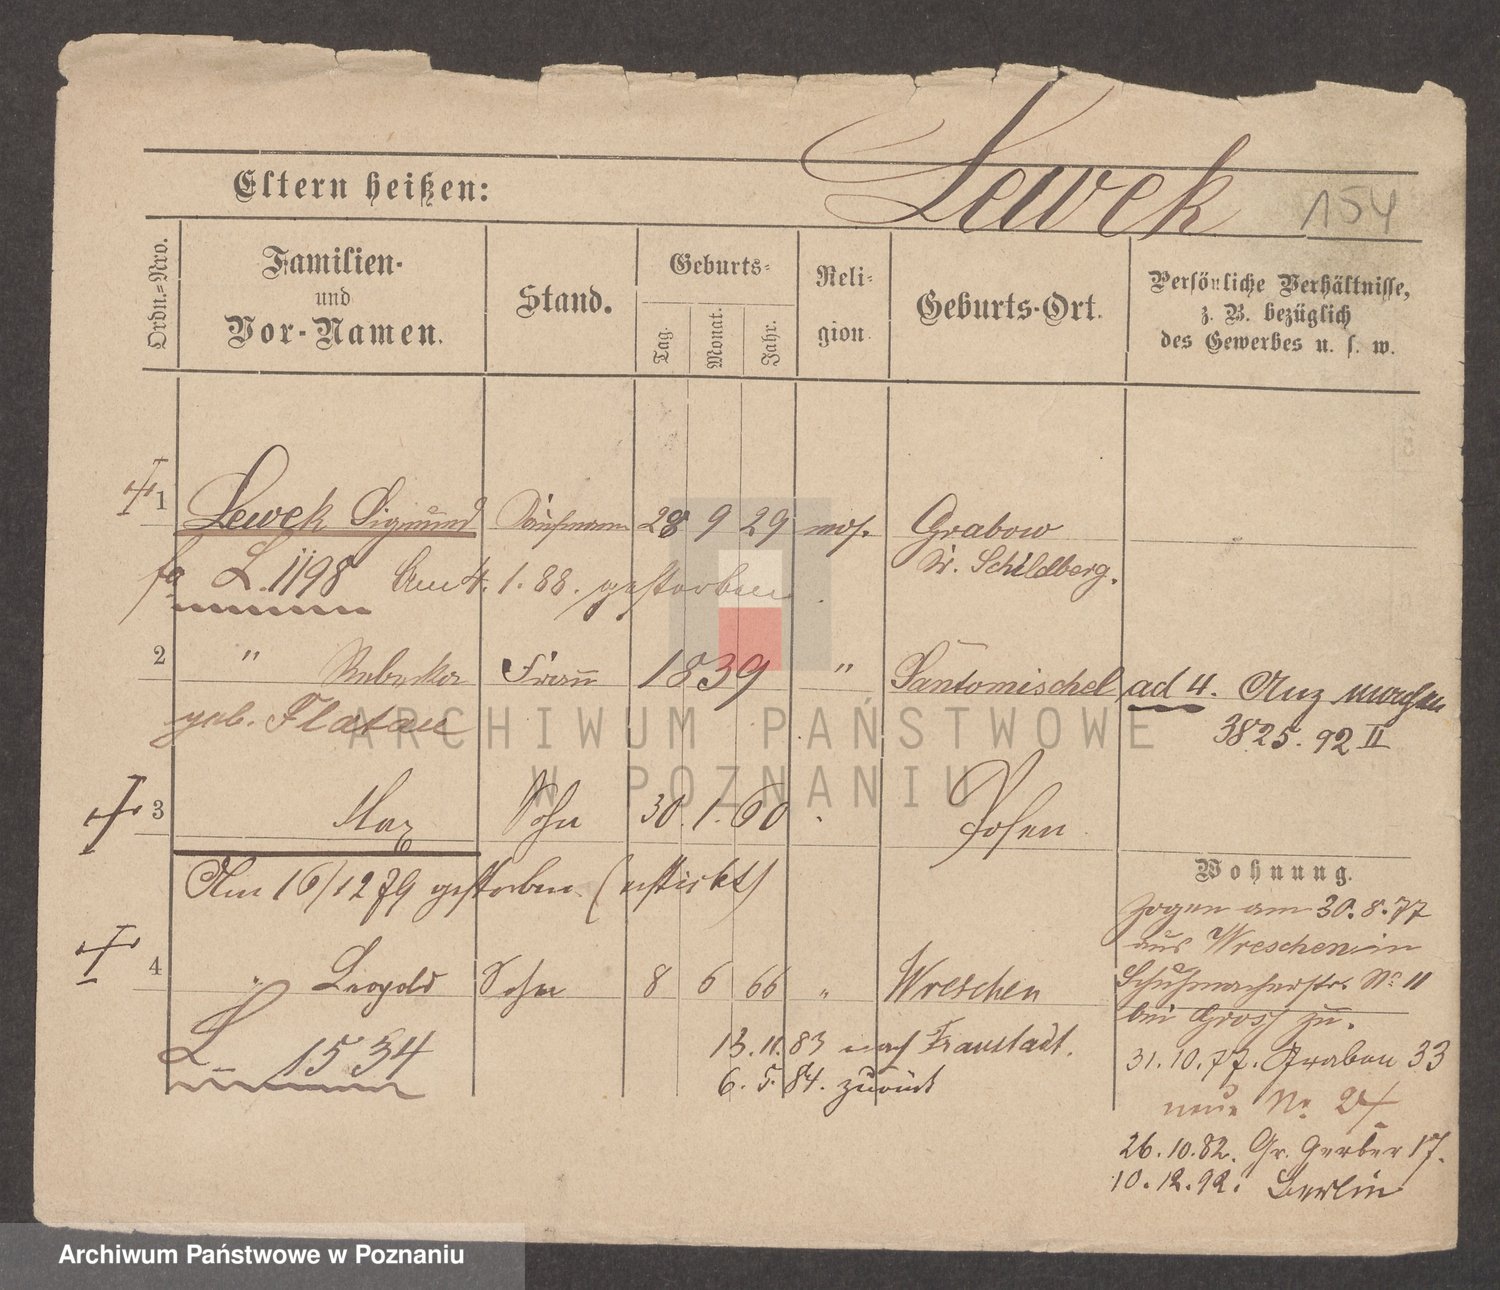 Lewek
154
Eltern heißen:
Ordn.=Nro.
Familien-
und
Vor-Namen.
Stand.
Geburts-
Tag.
Monat.
Jahr.
Reli-
gion.
Geburts-Ort.
Persönliche Verhältnisse,
z. B. bezüglich
des Gewerbes u. s. w.
1 Lewek Sigmund Kaufmann 28 9 29 mos. Grabow
Kr. Schildberg.
L. 1198 Am 4. 1. 88. gestorben.
2 " Rebecka Frau 1839 " Santomischel
geb. Flatau
ad 4. Anz
3825. 92 II
3 Max Sohn 30. 1. 60 Posen
Am 16/12 79 gestorben (erstickt)
4 " Leopold Sohn 8 6 66 " Wreschen
L 1534
13. 11. 83 nach Fraustadt.
6. 5. 84. zurück
Wohnung.
Zogen am 30. 8. 77
aus Wreschen in
Schuhmacherstr. No 11
bei Gross zu.
31. 10. 77. Graben 33
neue Nr.
26. 10. 82. Gr. Gerber 17.
10. 12. 92. Berlin
ARCHIWUM PAŃSTWOWE
W POZNANIU
Archiwum Państwowe w Poznaniu